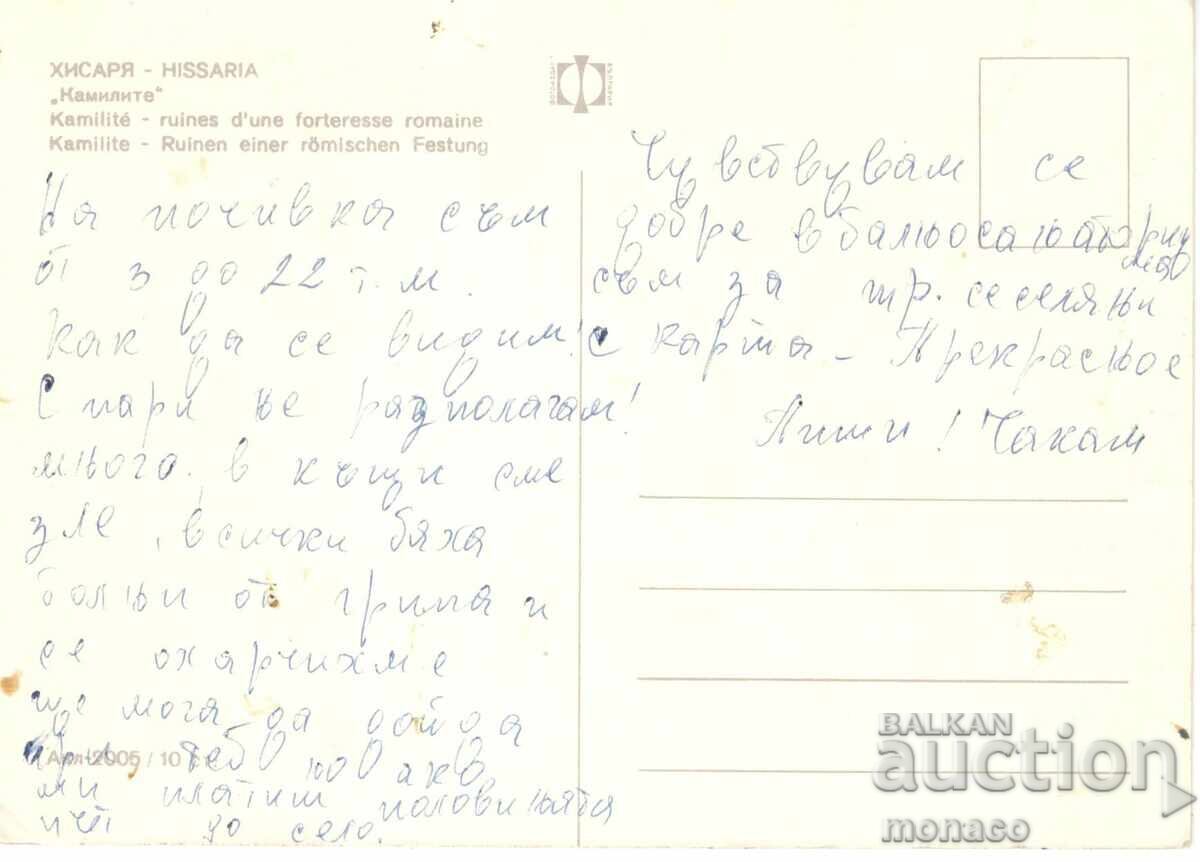 ХИСАРЯ - HISSARIA
„Камилите"
Kamilité - ruines d'une forteresse romaine
Kamilite - Ruinen einer römischen Festung
На почивка съм
от 3 до 22 т.м.
Как да се видим!
С пари не разполагам!
много, в къщи сме
зле, всички бяха
болни от грипа и
се охарчихме
ще мога да дойда
при теб но ако
ми платиш половината
път до село.
Чувствувам се
добре в
съм за тр. се сеселяни
с карта - Прекрасное
Пиши! Чакам
Акл-2005 / 10
BALKAN
auction
monaco